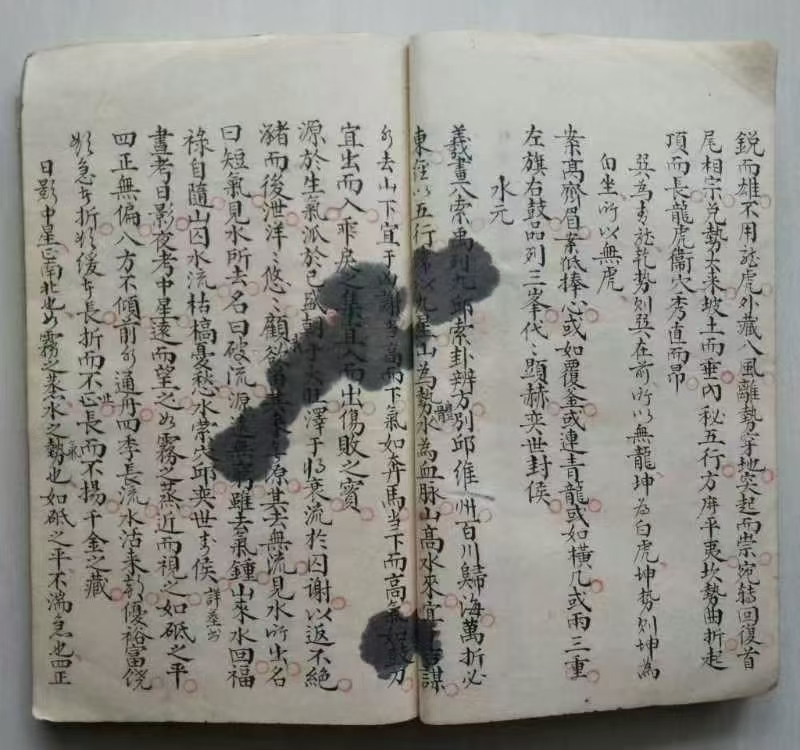 鋭而雄不用龍虎外藏八風離勢穿地突起而崇宛转回復首
尾相宗兌勢大来坡土而垂內秘五行方廣平夷坎勢曲折起
頂而長龍虎衞穴秀直而昂
巽為青龍乾勢则巽在前所以無龍坤為白虎坤勢则坤為
向坐所以無虎
案髙齊眉案低捧心或如覆釜或連青龍或如橫几或兩三重
左旗右鼓品列三峯代〻顕赫奕世封侯
水元
羲畫八索禹列九邱索卦辨方别邱维州百川歸海萬折必
東經以五行 以九星山為勢水為血脉山高水來宜 謀
水去山下宜于 謝 高而下氣如奔馬当下而高氣如 刀
宜出而入乖戾之集宜入而出傷敗之賓
源於生氣派於已盛朝于大旺澤于将衰流於囚謝以返不絶
瀦而後泄洋〻悠〻顧欲 其来 源其去無流見水所出名
曰短氣見水所去名曰破流源 無窮雖去氣鍾山來水回福
祿自隨山囚水流枯槁憂愁水縈穴邱奕世封侯 詳
晝考日影夜考中星遠而望之如霧之蒸近而視之如砥之平
四正無偏八方不傾前水通舟四季長流水沽未 優裕富饶
欲急于折欲缓于長折而不亡長而不揚千金之藏
日影中星正南北也如霧之蒸水之勢也如砥之平不湍急也四正